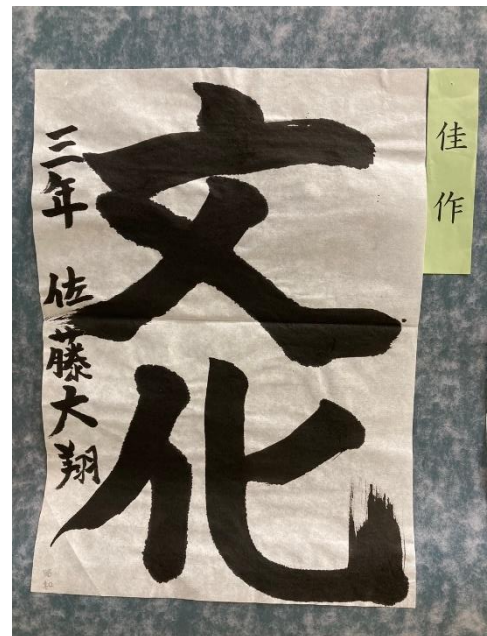 佳作
文化
三年 佐藤大翔